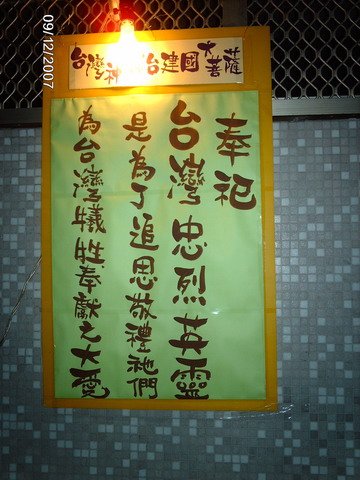 台灣神
治建國大菩薩
奉祀
台灣忠烈英靈
是為了追思敬禮祂們
為台灣犧牲奉獻之大愛
09/12/2007